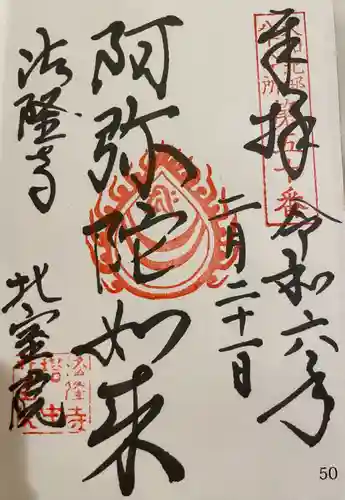 奉拝
令和六年
二月二十一日
阿弥陀如来
法隆寺
北室院
法隆寺
50